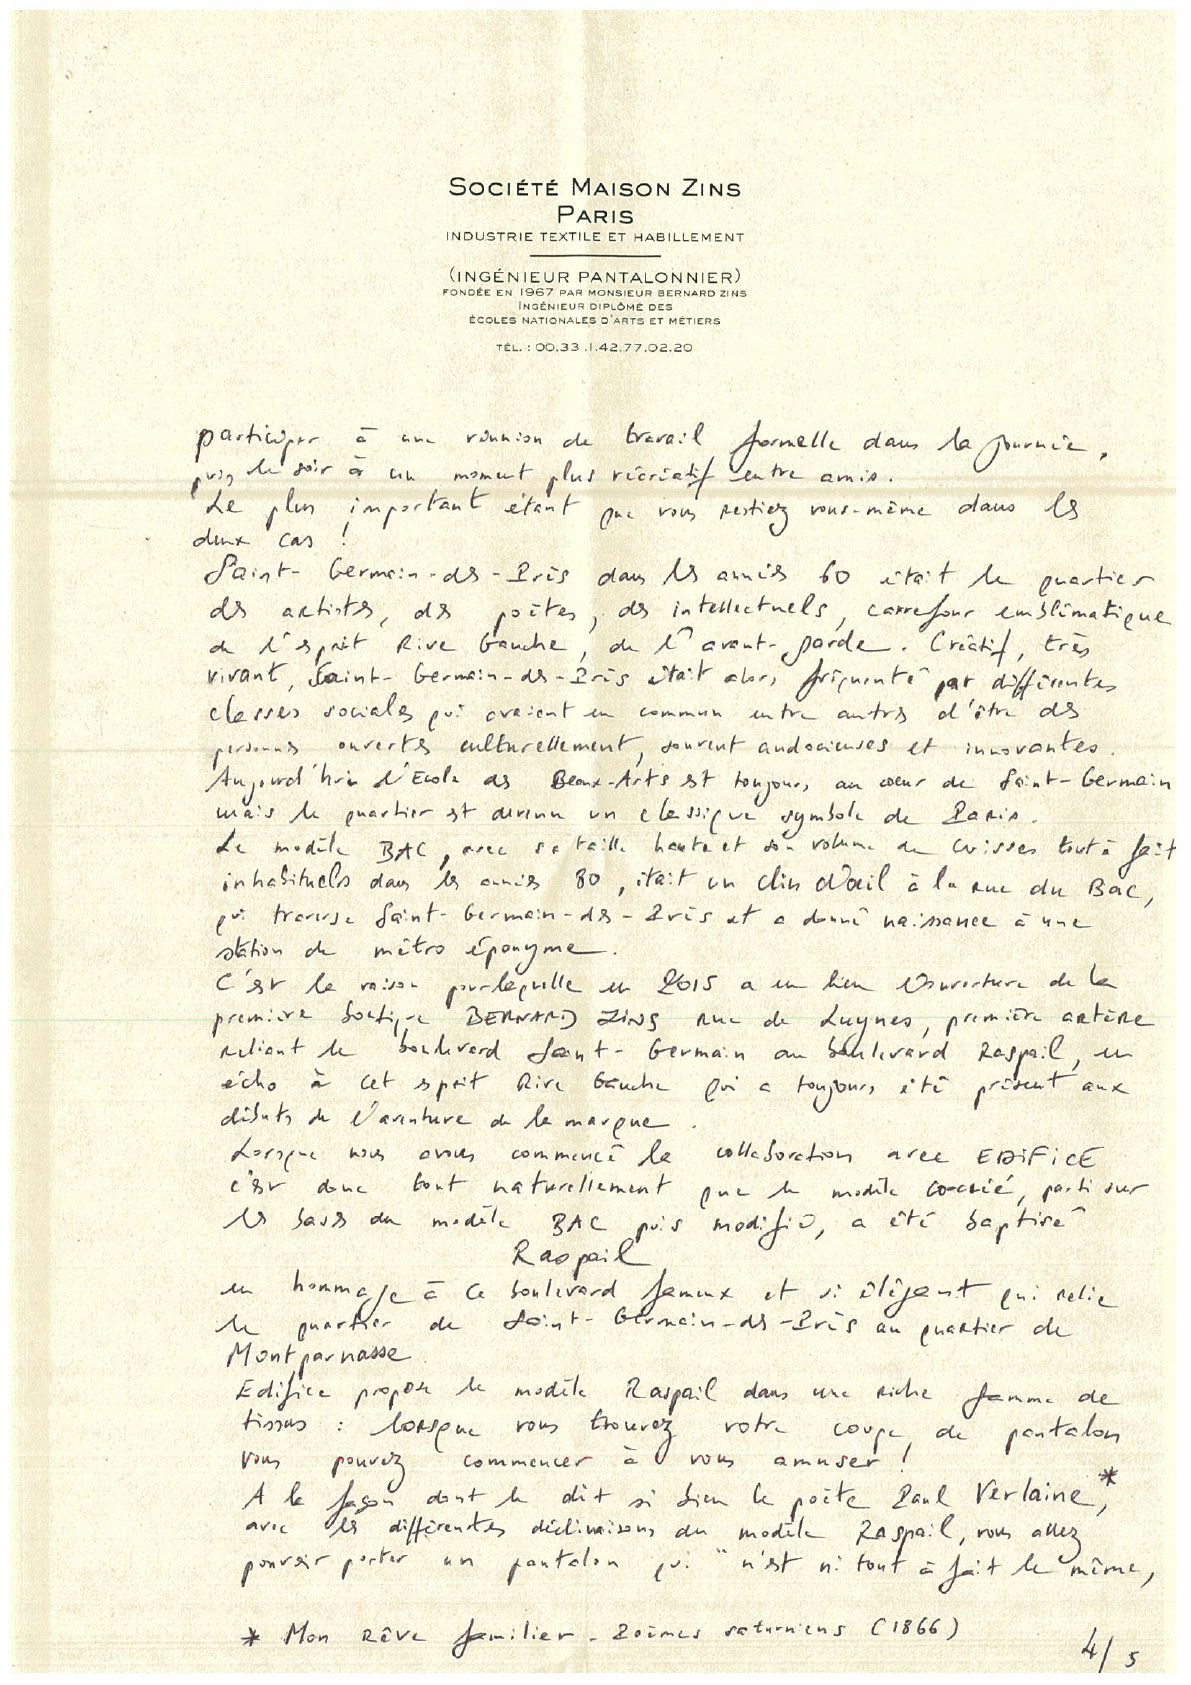 SOCIÉTÉ MAISON ZINS
PARIS
INDUSTRIE TEXTILE ET HABILLEMENT
(INGÉNIEUR PANTALONNIER)
FONDÉE EN 1967 PAR MONSIEUR BERNARD ZINS
INGÉNIEUR DIPLÔMÉ DES
ÉCOLES NATIONALES D'ARTS ET MÉTIERS
TÉL. : 00.33.1.42.77.02.20
participer à une réunion de travail formelle dans la journée,
puis le soir à un moment plus récréatif entre amis.
Le plus important étant que vous restiez vous-même dans les
deux cas !
Saint-Germain-des-Près dans les années 60 était le quartier
des artistes, des poètes, des intellectuels, carrefour emblématique
de l'esprit Rive Gauche, de l'avant-garde. Créatif, très
vivant, Saint-Germain-des-Près était alors fréquenté par différentes
classes sociales qui avaient en commun entre autres d'être des
personnes ouvertes culturellement, souvent audacieuses et innovantes.
Aujourd'hui l'Ecole des Beaux-Arts est toujours au cœur de Saint-Germain
mais le quartier est devenu un classique symbole de Paris.
Le modèle BAC, avec sa taille haute et son volume de cuisses tout à fait
inhabituels dans les années 80, était un clin d'œil à la rue du Bac,
qui traverse Saint-Germain-des-Près et a donné naissance à une
station de métro éponyme.
C'est la raison pour laquelle en 2015 a eu lieu l'ouverture de la
première boutique BERNARD ZINS rue de Luynes, première artère
reliant le boulevard Saint-Germain au boulevard Raspail, en
écho à cet esprit Rive Gauche qui a toujours été présent aux
débuts de l'aventure de la marque.
Lorsque nous avons commencé la collaboration avec EDIFICE
c'est donc tout naturellement que le modèle co-créé, parti sur
les bases du modèle BAC puis modifié, a été baptisé
Raspail
en hommage à ce boulevard fameux et si élégant qui relie
le quartier de Saint-Germain-des-Près au quartier de
Montparnasse.
Edifice propose le modèle Raspail dans une riche gamme de
tissus : lorsque vous trouvez votre coupe de pantalon
vous pouvez commencer à vous amuser !
A la façon dont le dit si bien le poète Paul Verlaine*,
avec les différentes déclinaisons du modèle Raspail, vous allez
pouvoir porter un pantalon qui "n'est ni tout à fait le même,
* Mon Rêve familier - Poèmes saturniens (1866)
4/5